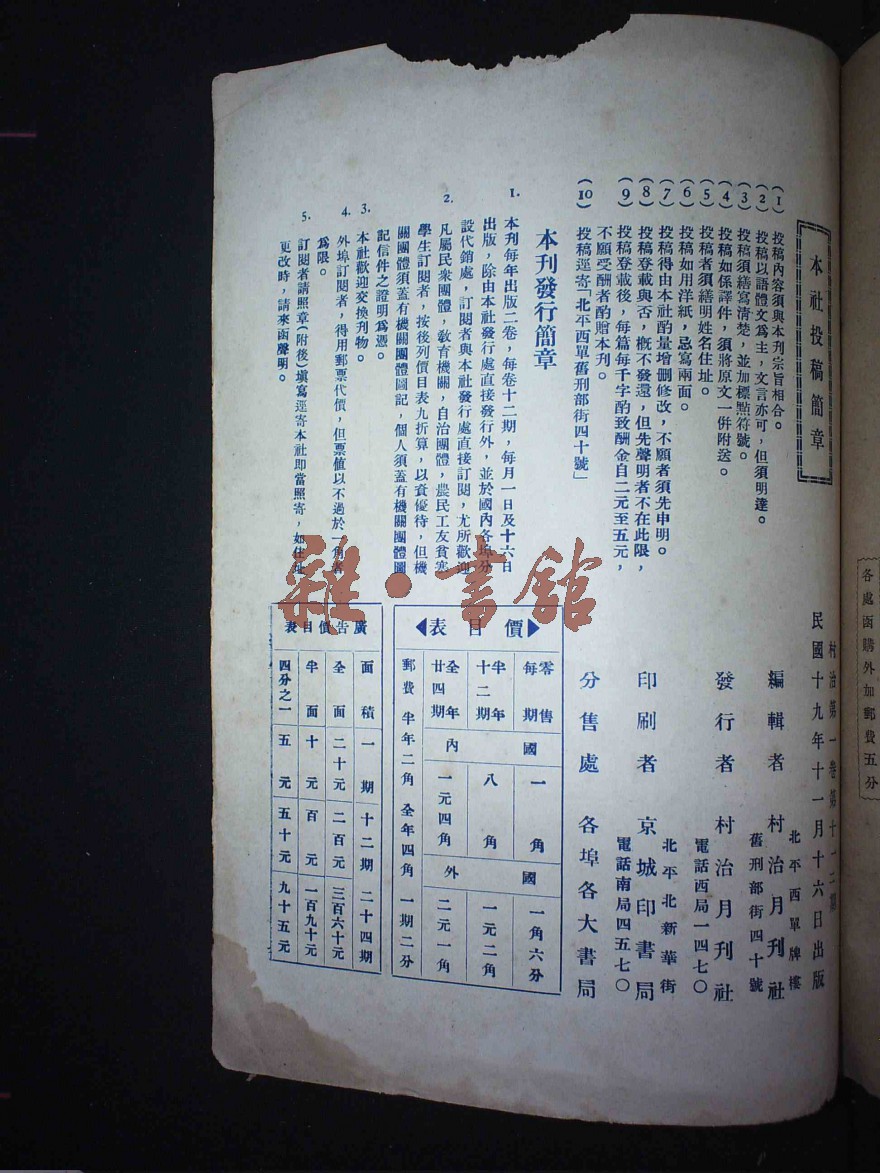 本社投稿簡章
(1) 投稿內容須與本刊宗旨相合。
(2) 投稿以語體文爲主，文言亦可，但須明達。
(3) 投稿須繕寫清楚，並加標點符號。
(4) 投稿如係譯件，須將原文一併附送。
(5) 投稿者須繕明姓名住址。
(6) 投稿如用洋紙，忌寫兩面。
(7) 投稿得由本社酌量增刪修改，不願者須先申明。
(8) 投稿登載與否，槪不發還，但先聲明者不在此限，
(9) 投稿登載後，每篇每千字酌致酬金自二元至五元，
不願受酬者酌贈本刊。
(10) 投稿逕寄「北平西單舊刑部街四十號」
本刊發行簡章
1. 本刊每年出版二卷，每卷十二期，每月一日及十六日
出版，除由本社發行處直接發行外，並於國內各埠分
設代銷處，訂閱者與本社發行處直接訂閱，尤所歡迎
2. 凡屬民衆團體，敎育機關，自治團體，農民工友貧寒
學生訂閱者，按後列價目表九折算，以資優待，但機
關團體須蓋有機關團體圖記，個人須蓋有機關團體圖
記信件之證明爲憑。
3. 本社歡迎交換刊物。
4. 外埠訂閱者，得用郵票代價，但票値以不過於一角者
爲限。
5. 訂閱者請照章(附後)塡寫逕寄本社卽當照寄，如住址
更改時，請來函聲明。
村治第一卷第十二期
民國十九年十一月十六日出版
編輯者 村治月刊社
北平西單牌樓
舊刑部街四十號
發行者 村治月刊社
電話西局一四七〇
印刷者 京城印書局
北平北新華街
電話南局四五七〇
分售處 各埠各大書局
價目表
零售每期 國內 一角 國外 一角六分
半年十二期 八角 一元二角
全年廿四期 一元四角 二元一角
郵費 半年二角 全年四角 一期二分
廣告價目表
面積 一期 十二期 二十四期
全面 二十元 二百元 三百六十元
半面 十元 百元 一百九十元
四分之一 五元 五十元 九十五元
各處函購外加郵費五分
雜·書館